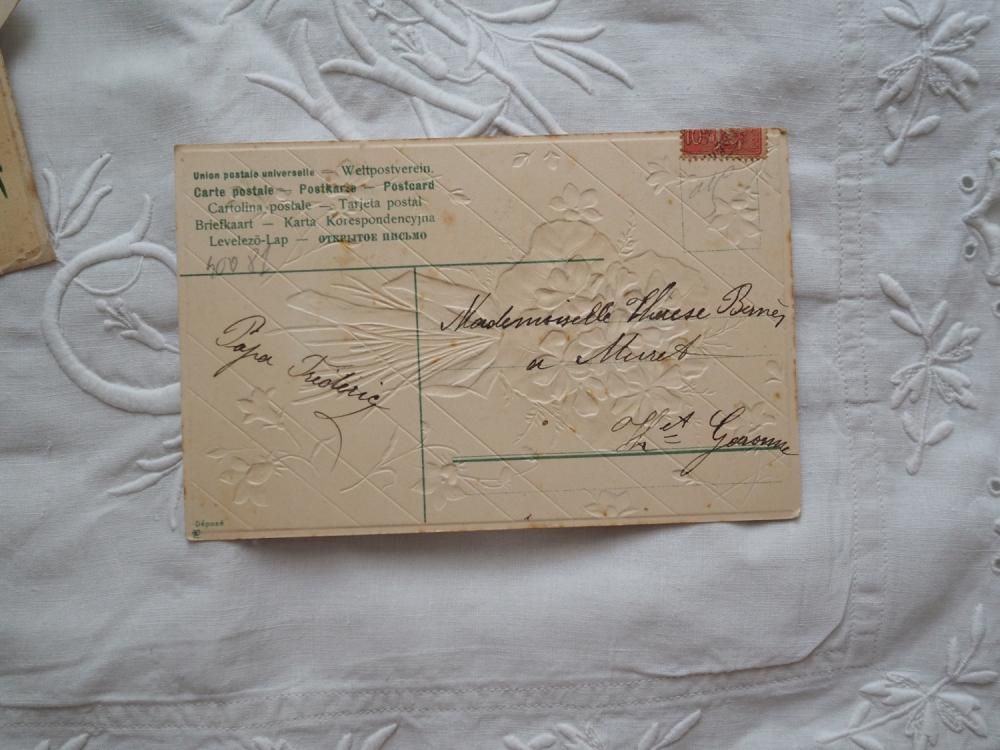 Union postale universelle — Weltpostverein.
Carte postale — Postkarte — Postcard
Cartolina postale — Tarjeta postal
Briefkaart — Karta Korespondencyjna
Levelező-Lap — ОТКРЫТОЕ ПИСЬМО
Papa Frédéric
Mademoiselle Thérèse
a Muret
Hte Garonne
Déposé